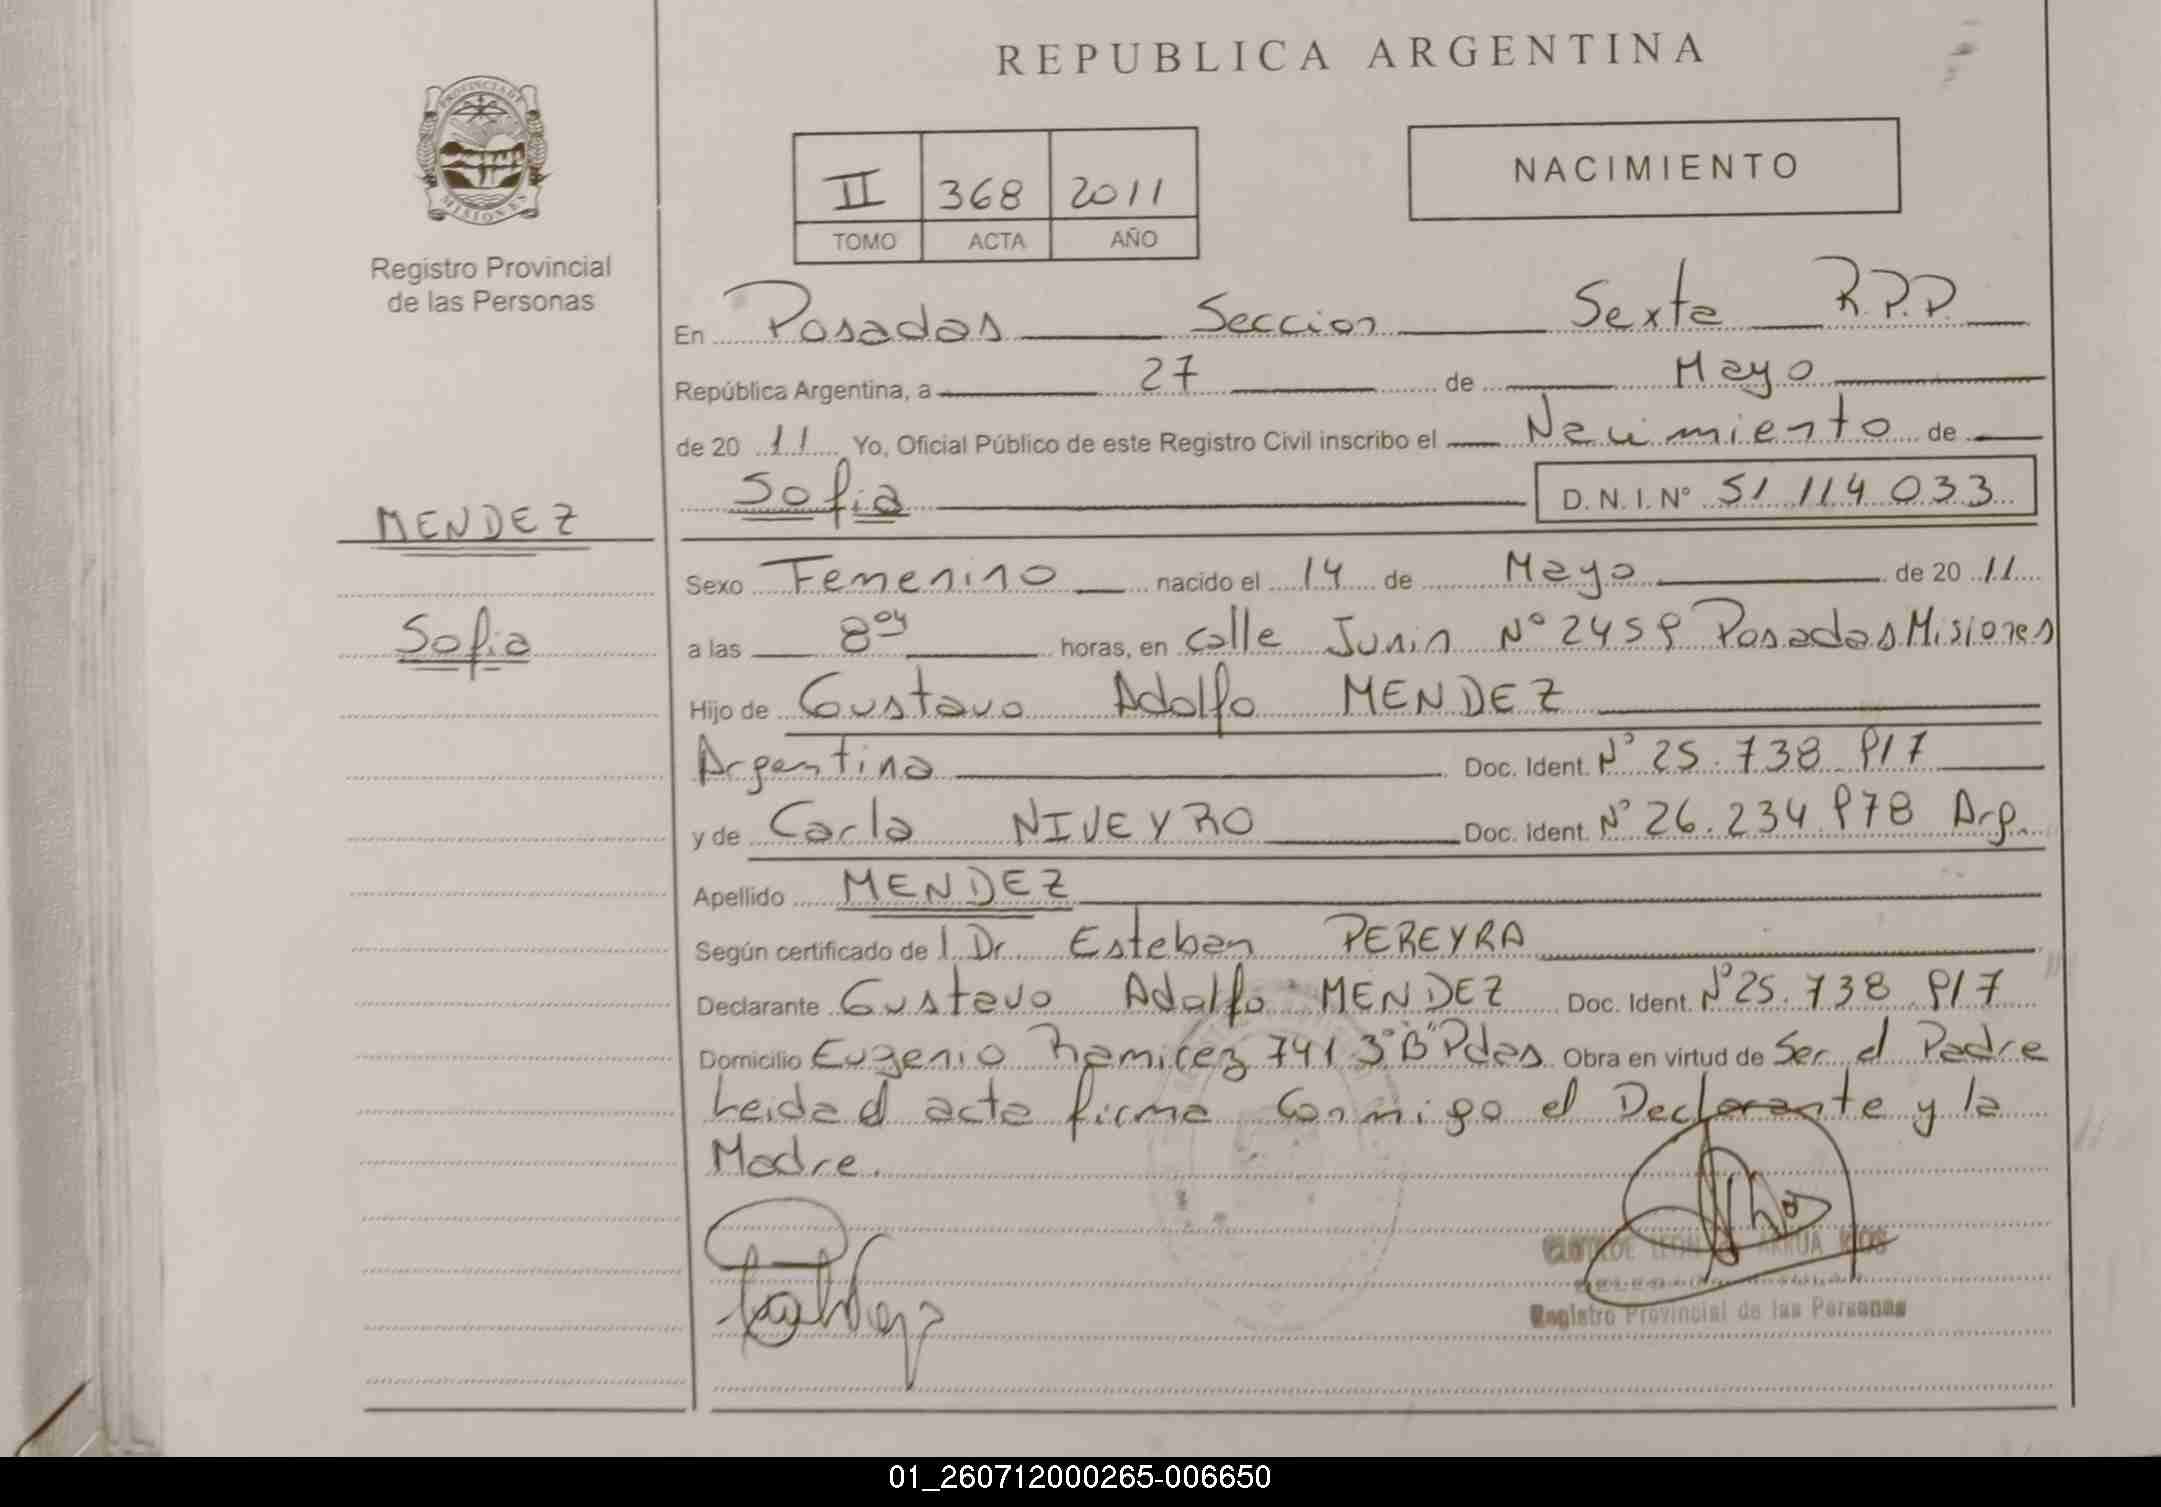 REPUBLICA ARGENTINA
PROVINCIA DE
MISIONES
Registro Provincial
de las Personas
II 368 2011
TOMO ACTA AÑO
NACIMIENTO
En Posadas Seccion Sexta R.P.P.
República Argentina, a 27 de Mayo
de 20 11 Yo, Oficial Público de este Registro Civil inscribo el Nacimiento de
Sofia D.N.I. Nº 51 114 033
MENDEZ
Sofia
Sexo Femenino nacido el 14 de Mayo de 20 11
a las 8 04 horas, en Calle Junin Nº 2459 Posadas Misiones
Hijo de Gustavo Adolfo MENDEZ
Argentina Doc. Ident. Nº 25.738.917
y de Carla NIVEYRO Doc. Ident. Nº 26.234.978 Arg.
Apellido MENDEZ
Según certificado de l Dr. Esteban PEREYRA
Declarante Gustavo Adolfo MENDEZ Doc. Ident. Nº 25.738.917
Domicilio Eugenio Ramirez 741 3º "B" Pdas. Obra en virtud de Ser el Padre
Leida el acta firma Conmigo el Declarante y la
Madre.
Registro Provincial de las Personas
01_260712000265-006650